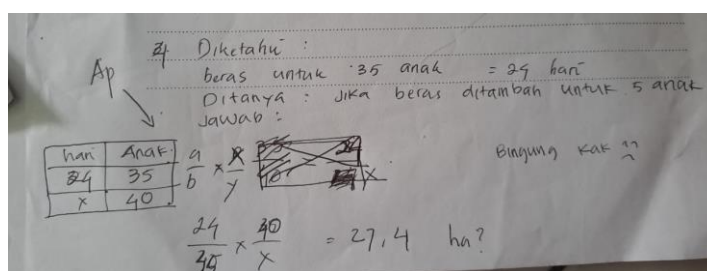 Diketahui :
beras untuk 35 anak = 24 hari
Ditanya : Jika beras ditambah untuk 5 anak
Jawab :
Ap
hari Anak
24 35
x 40
a/b x x/y
x
Bingung kak
24/35 x 40/x = 27,4 ha?